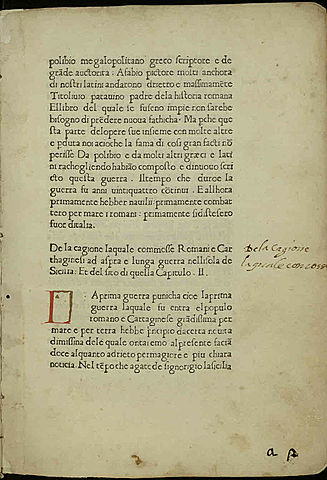 polibio megalopolitano greco scriptore e de
grãde auctorita: A fabio pictore molti anchora
di nostri latini andarono drietto e massimamẽte
Titoliuio patauino padre dela historia romana
El libro del quale se fuseno impie non sarebe
bisogno di prẽdere nuoua fathicha. Ma pche que
sta parte delopere sue insieme con molte altre
e pduta noi acioche la fama di cosi gran facti nõ
perisse Da polibio e da molti altri græci e lati
ni rachogliendo habião composto e dinuouo scri
cto questa guerra. Il tempo che duroe la
guerra fu anni uintiquattro cõtinui. E allhora
primamente hebber nauilii: primamente combat
tero per mare i romani: primamente si distesero
fuor ditalia.
De la cagione laquale commosse Romani e Car
thaginesi ad aspra e lunga guerra nellisola de
Sicilia: Et del sito di quella Capitulo. II.
LA prima guerra punicha cioe la prima
guerra laquale fu entra el populo
romano e Cartaginese grãdissima per
mare e per terra hebbe prĩcipio da certa neuita
dimissina dele quale contaremo al presente faciã
doce alquanto adrieto per magiore e piu chiara
noticia. Nel tẽpo che agatode signorigio la sicilia
De la Cagione
laquale com
a